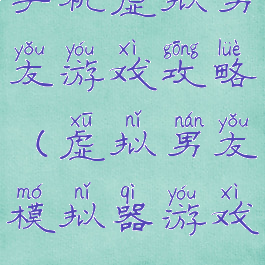 手机虚拟男
yǒu yóu xì gōng lüè
友游戏攻略
xū nǐ nán yǒu
（虚拟男友
mó nǐ qì yóu xì
模拟器游戏